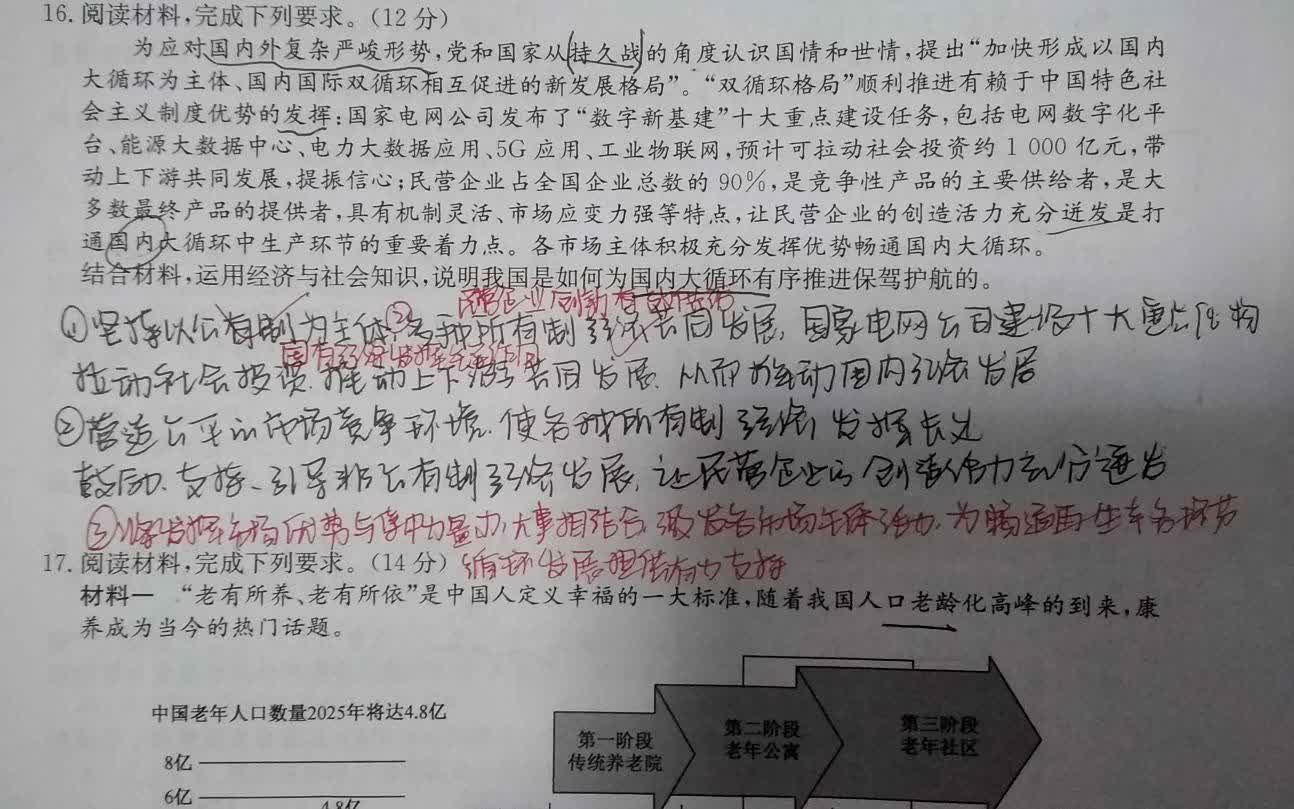 16. 阅读材料,完成下列要求。(12 分)
为应对国内外复杂严峻形势,党和国家从持久战的角度认识国情和世情,提出“加快形成以国内
大循环为主体、国内国际双循环相互促进的新发展格局”。“双循环格局”顺利推进有赖于中国特色社
会主义制度优势的发挥:国家电网公司发布了“数字新基建”十大重点建设任务,包括电网数字化平
台、能源大数据中心、电力大数据应用、5G 应用、工业物联网,预计可拉动社会投资约 1 000 亿元,带
动上下游共同发展,提振信心;民营企业占全国企业总数的 90%,是竞争性产品的主要供给者,是大
多数最终产品的提供者,具有机制灵活、市场应变力强等特点,让民营企业的创造活力充分迸发是打
通国内大循环中生产环节的重要着力点。各市场主体积极充分发挥优势畅通国内大循环。
结合材料,运用经济与社会知识,说明我国是如何为国内大循环有序推进保驾护航的。
民营企业
①坚持以公有制为主体②多种所有制经济共同发展,国家电网公司建设十大重点任务
国有经济发挥主导作用
拉动社会投资,推动上下游共同发展,从而推动国内经济发展
②营造公平的市场竞争环境,使各种所有制经济发挥长处
鼓励、支持、引导非公有制经济发展,让民营企业的创造活力充分迸发
③发挥市场优势与集中力量办大事相结合,激发各市场主体活力,为畅通再生产各环节
17. 阅读材料,完成下列要求。(14 分) 循环发展提供有力支持
材料一 “老有所养、老有所依”是中国人定义幸福的一大标准,随着我国人口老龄化高峰的到来,康
养成为当今的热门话题。
中国老年人口数量2025年将达4.8亿
8亿
6亿
4.8亿
第一阶段
传统养老院
第二阶段
老年公寓
第三阶段
老年社区